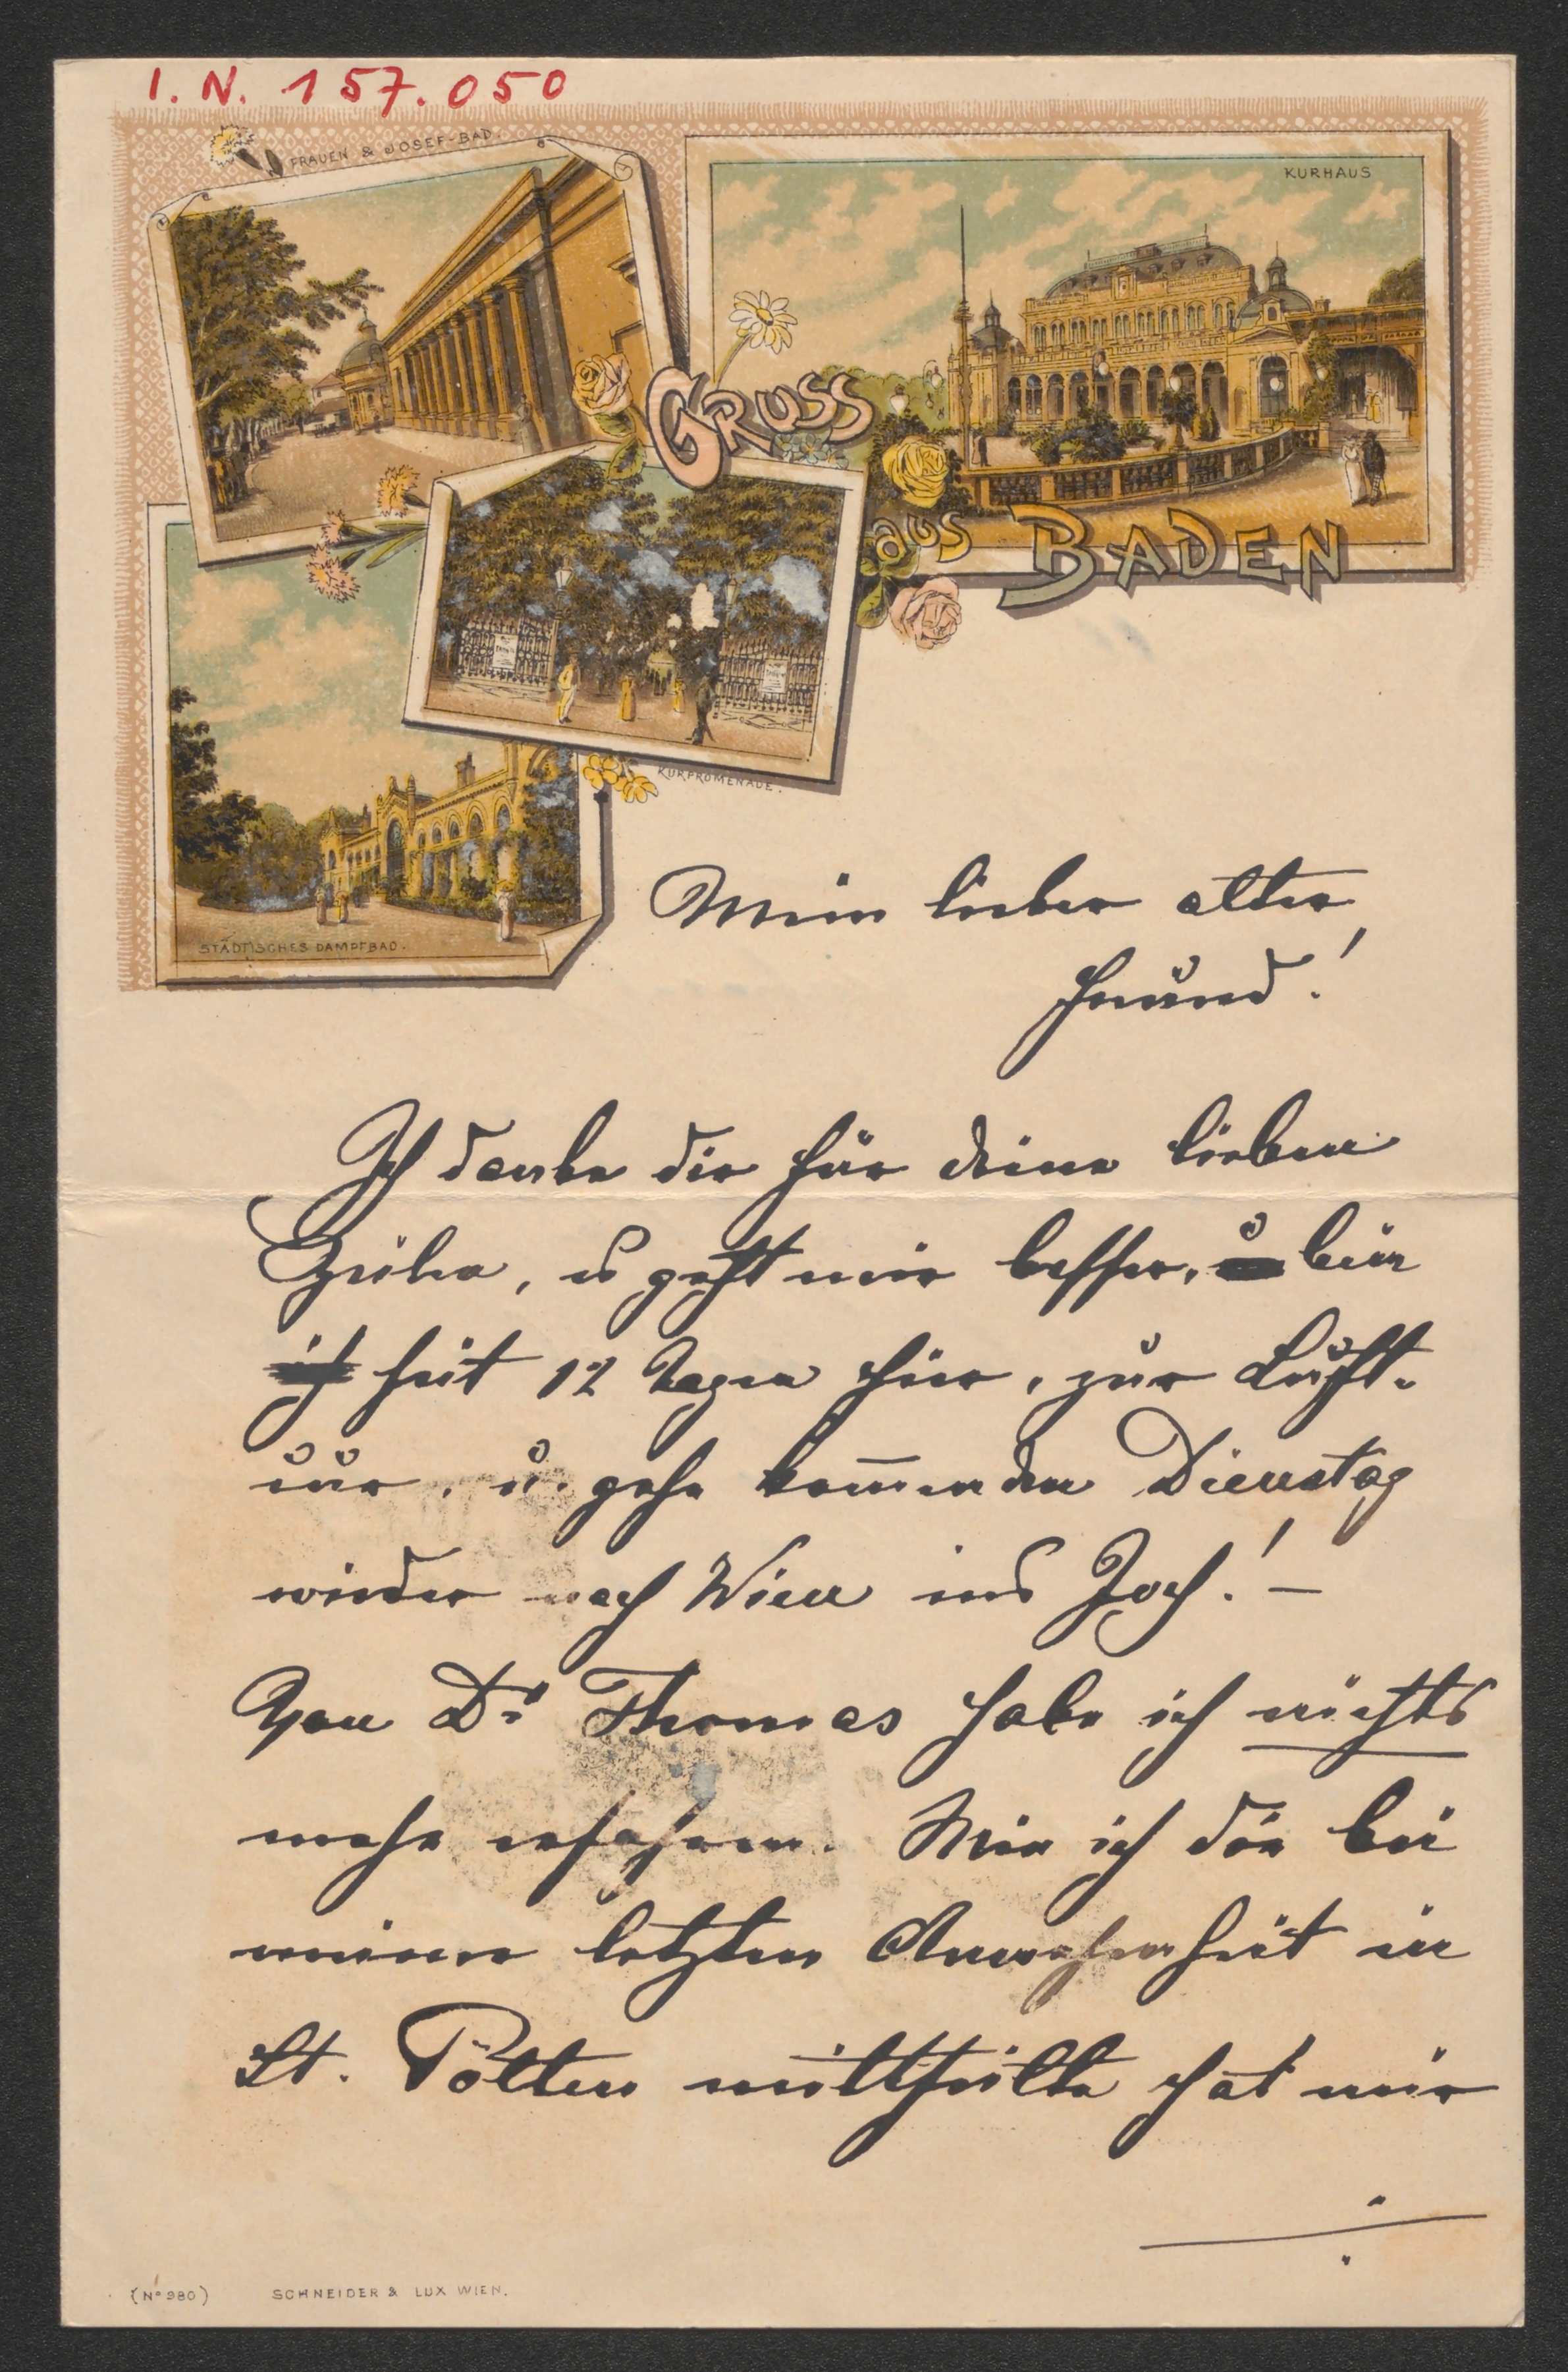 I. N. 157.050
FRAUEN & JOSEF-BAD.
KURHAUS
GRUSS
aus BADEN
KURPROMENADE.
STÄDTISCHES DAMPFBAD.
Mein lieber alter
Freund!
Ich danke dir für deine lieben
Zeilen, es geht mir besser, bin
seit 12 Tagen hier, zur Luft-
kur, u. gehe kommenden Dienstag
wieder nach Wien ins Joch! –
Von Dr Thomas habe ich nichts
mehr erfahren. Wie ich dir bei
meiner letzten Anwesenheit in
St. Pölten mittheilte hat mir
(No 980) SCHNEIDER & LUX WIEN.